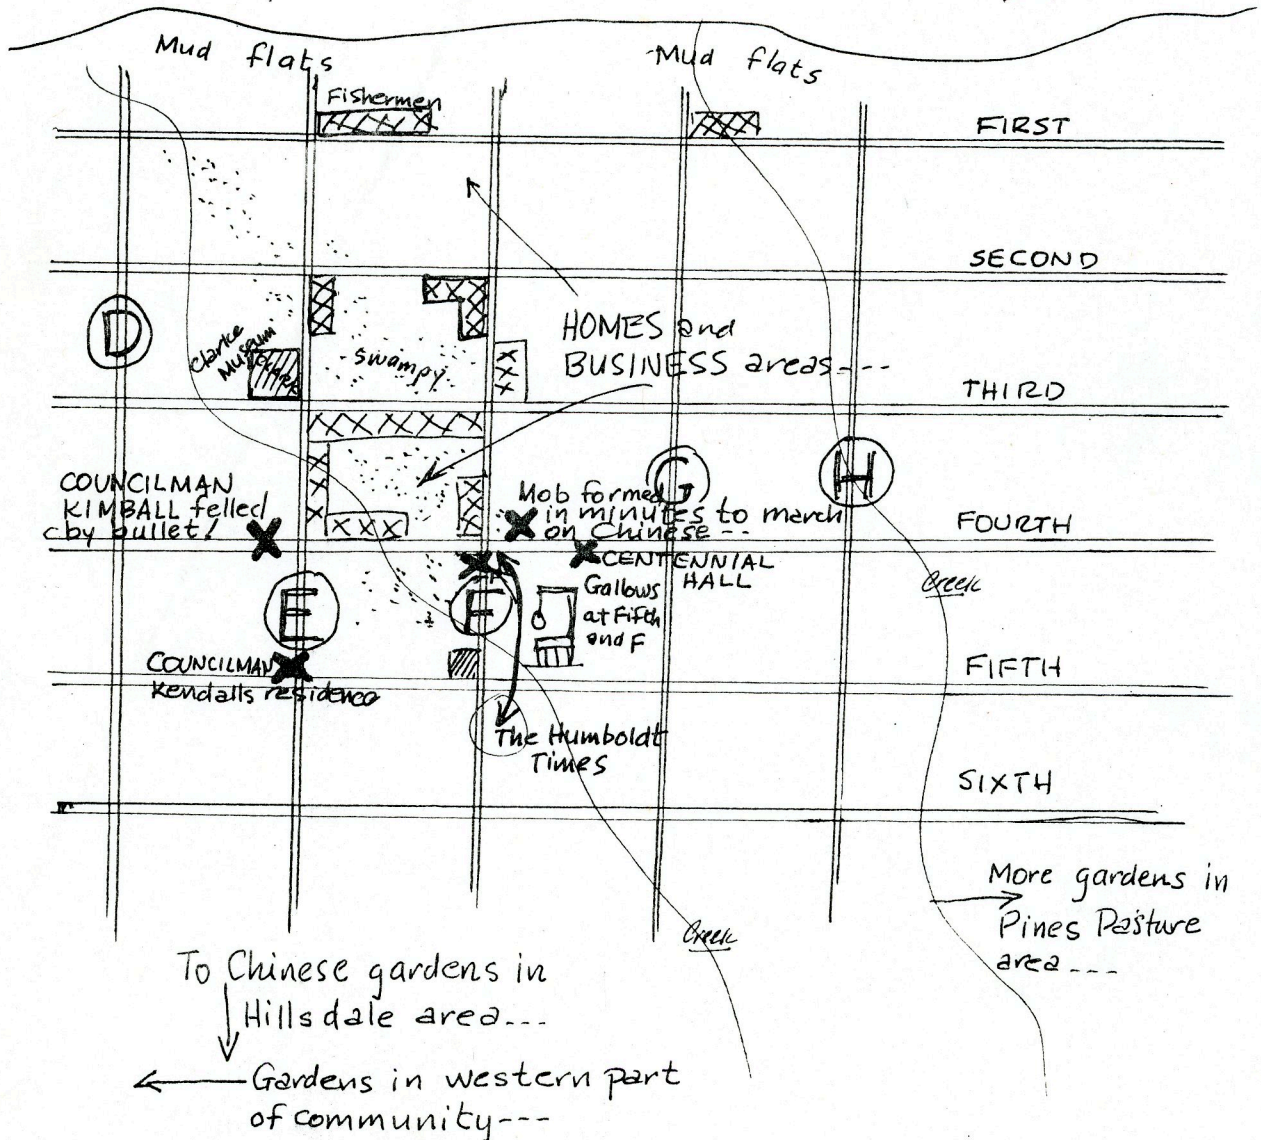 Mud flats
Mud flats
Fishermen
FIRST
SECOND
D
Clarke
Museum
Clark
swampy
HOMES and
BUSINESS areas----
THIRD
COUNCILMAN
KIMBALL felled
by bullet!
G
H
Mob formed
in minutes to march
on Chinese --
FOURTH
CENTENNIAL
HALL
Creek
E
F
Gallows
at Fifth
and F
COUNCILMAN
Kendalls residence
FIFTH
The Humboldt
Times
SIXTH
More gardens in
Pines Pasture
area----
Creek
To Chinese gardens in
Hillsdale area---
Gardens in western part
of community---